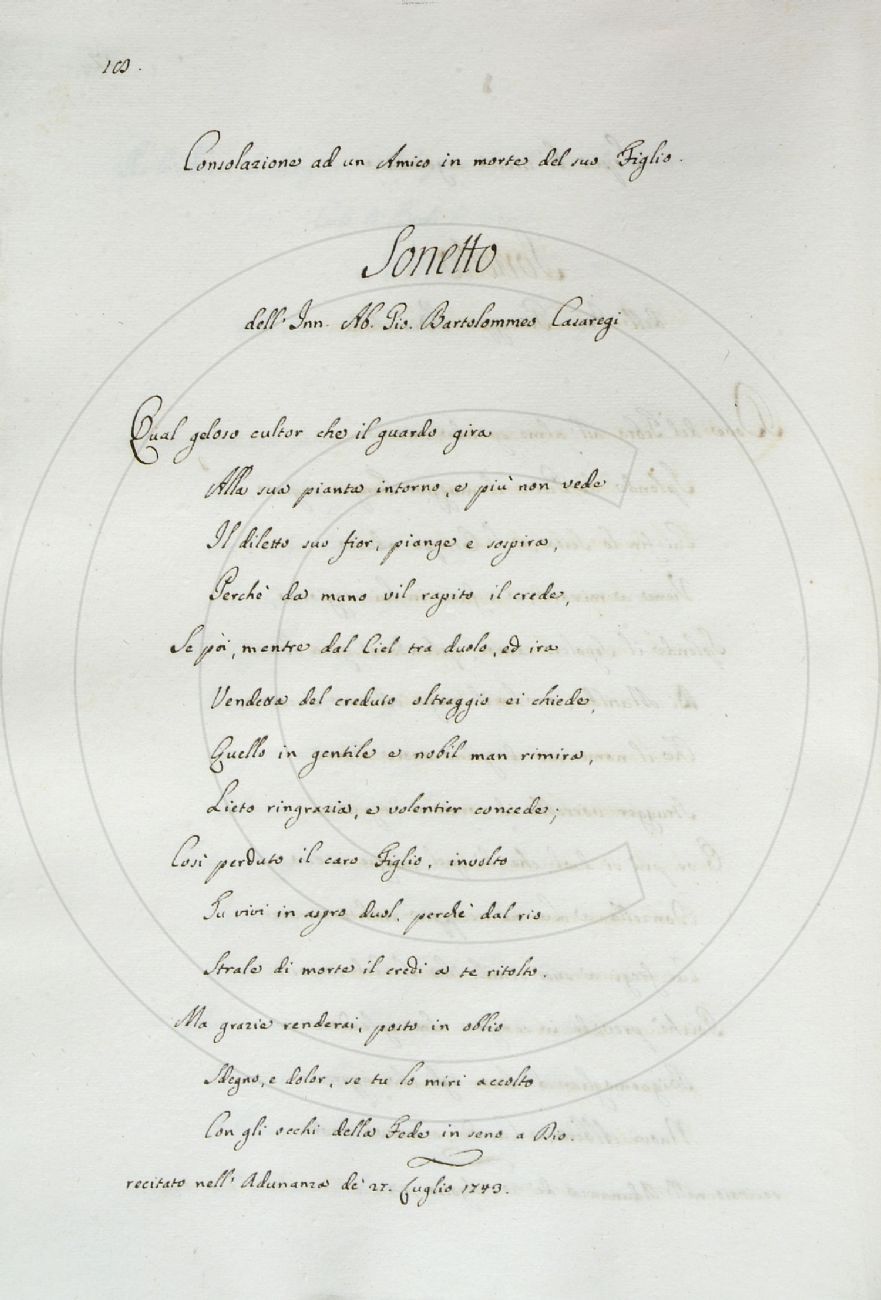 100.
Consolazione ad un Amico in morte del suo Figlio.
Sonetto
dell' Inn. Ab. Gio. Bartolommeo Casaregi
Qual geloso cultor che il guardo gira
Alla sua pianta intorno, e più non vede
Il diletto suo fior, piange e sospira,
Perchè da mano vil rapito il crede,
Se poi, mentre dal Ciel tra duolo, ed ira
Vendetta del creduto oltraggio ei chiede,
Quello in gentile e nobil man rimira,
Lieto ringrazia, e volentier concede;
Così perduto il caro Figlio, involto
Tu vivi in aspro duol, perchè dal rio
Strale di morte il credi a te ritolto.
Ma grazie renderai, posto in oblio
Sdegno, e dolor, se tu lo miri accolto
Con gli occhi della Fede in seno a Dio.
recitato nell' Adunanza de' 27. Luglio 1743.